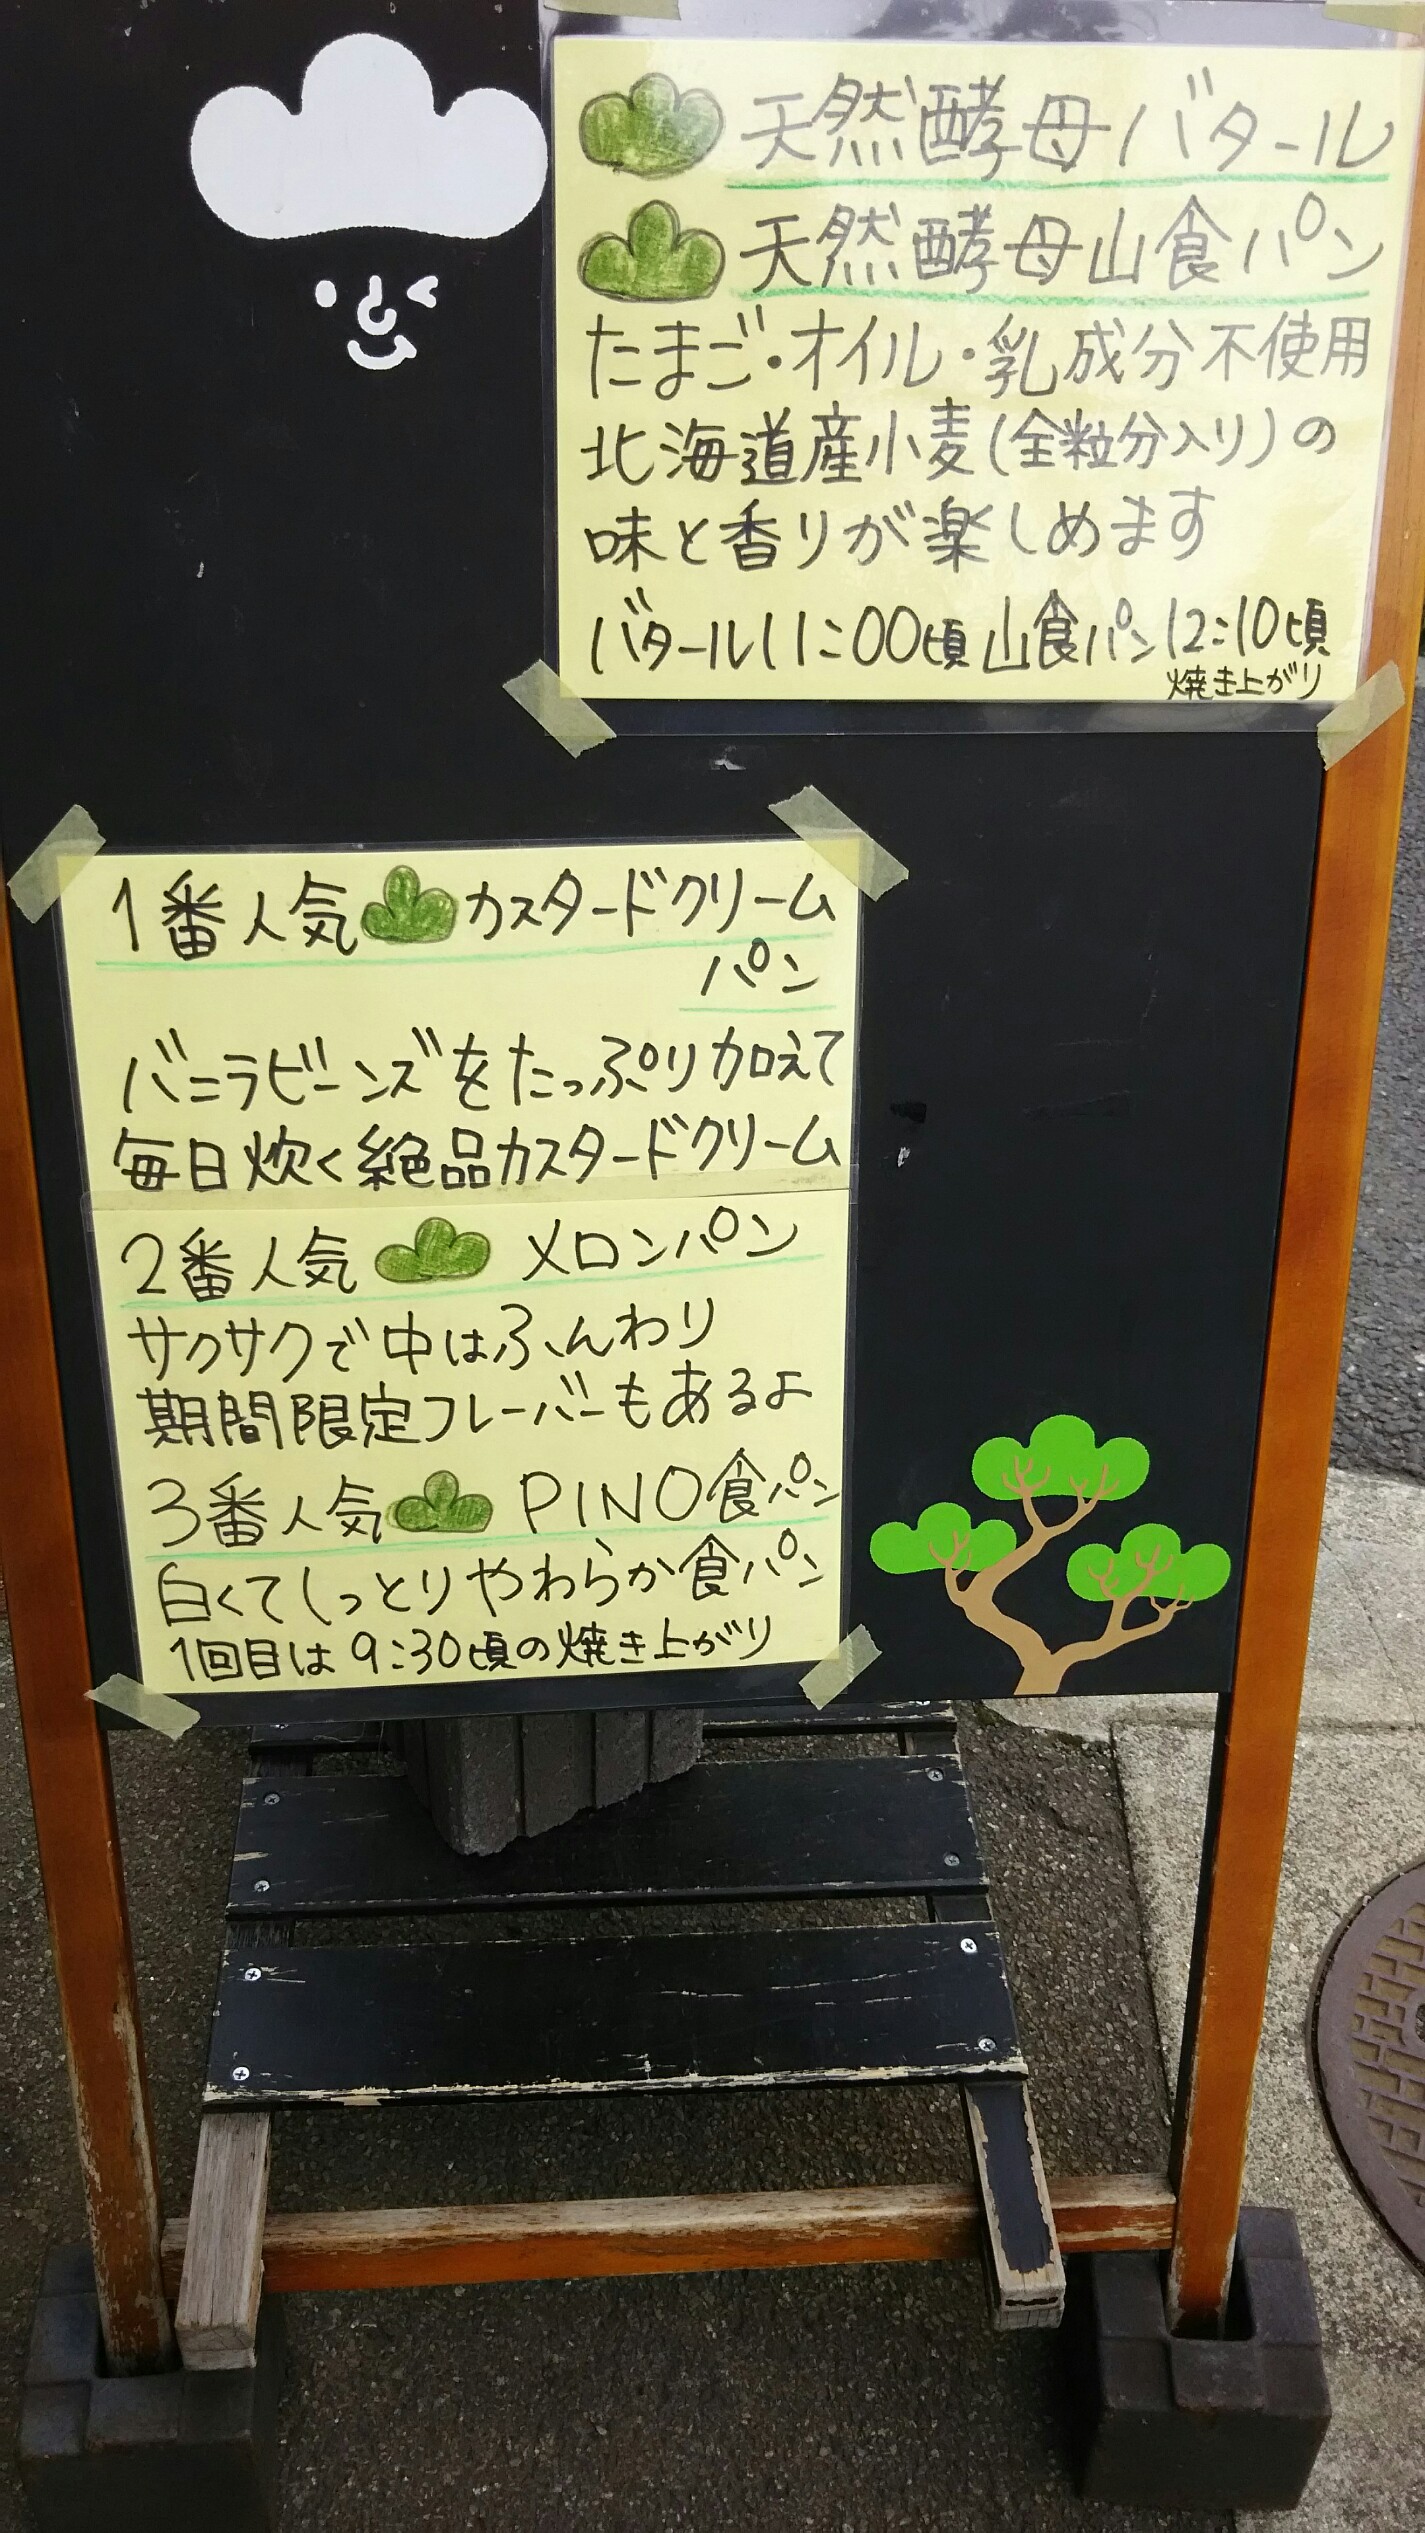 天然酵母バタール
天然酵母山食パン
たまご・オイル・乳成分不使用
北海道産小麦(全粒分入り)の
味と香りが楽しめます
バタール11:00頃 山食パン12:10頃
焼き上がり
1番人気 カスタードクリーム
パン
バニラビーンズをたっぷり加えて
毎日炊く絶品カスタードクリーム
2番人気 メロンパン
サクサクで中はふんわり
期間限定フレーバーもあるよ
3番人気 PINO食パン
白くてしっとりやわらか食パン
1回目は9:30頃の焼き上がり